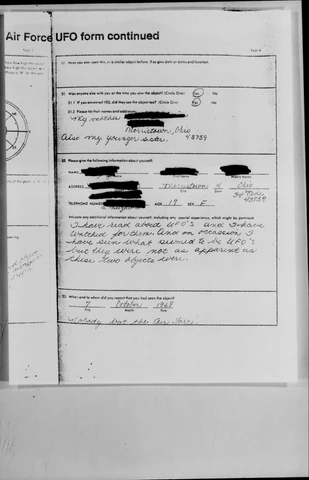 Air Force UFO form continued
Page 4
31. Have you ever seen this, or a similar object before. If so give date or dates and location.
32. Was anyone else with you at the time you saw the object? (Circle One) Yes No
32.1 If you answered YES, did they see the object too? (Circle One) Yes No
32.2 Please list their names and addresses:
My mother
Morristown, Ohio
Also my younger sister. 43759
33. Please give the following information about yourself:
NAME
ADDRESS Morristown Ohio
City Zone State
43759
TELEPHONE NUMBER AGE 19 SEX F
Indicate any additional information about yourself, including any special experience, which might be pertinent.
I have read about UFO's and I have
watched for them. And on occasion I
have seen what seemed to be UFO's
but they were not as apparent as
these two objects were.
When and to whom did you report that you had seen the object?
7 October 1968
Day Month Year
Nobody but the Air Force.